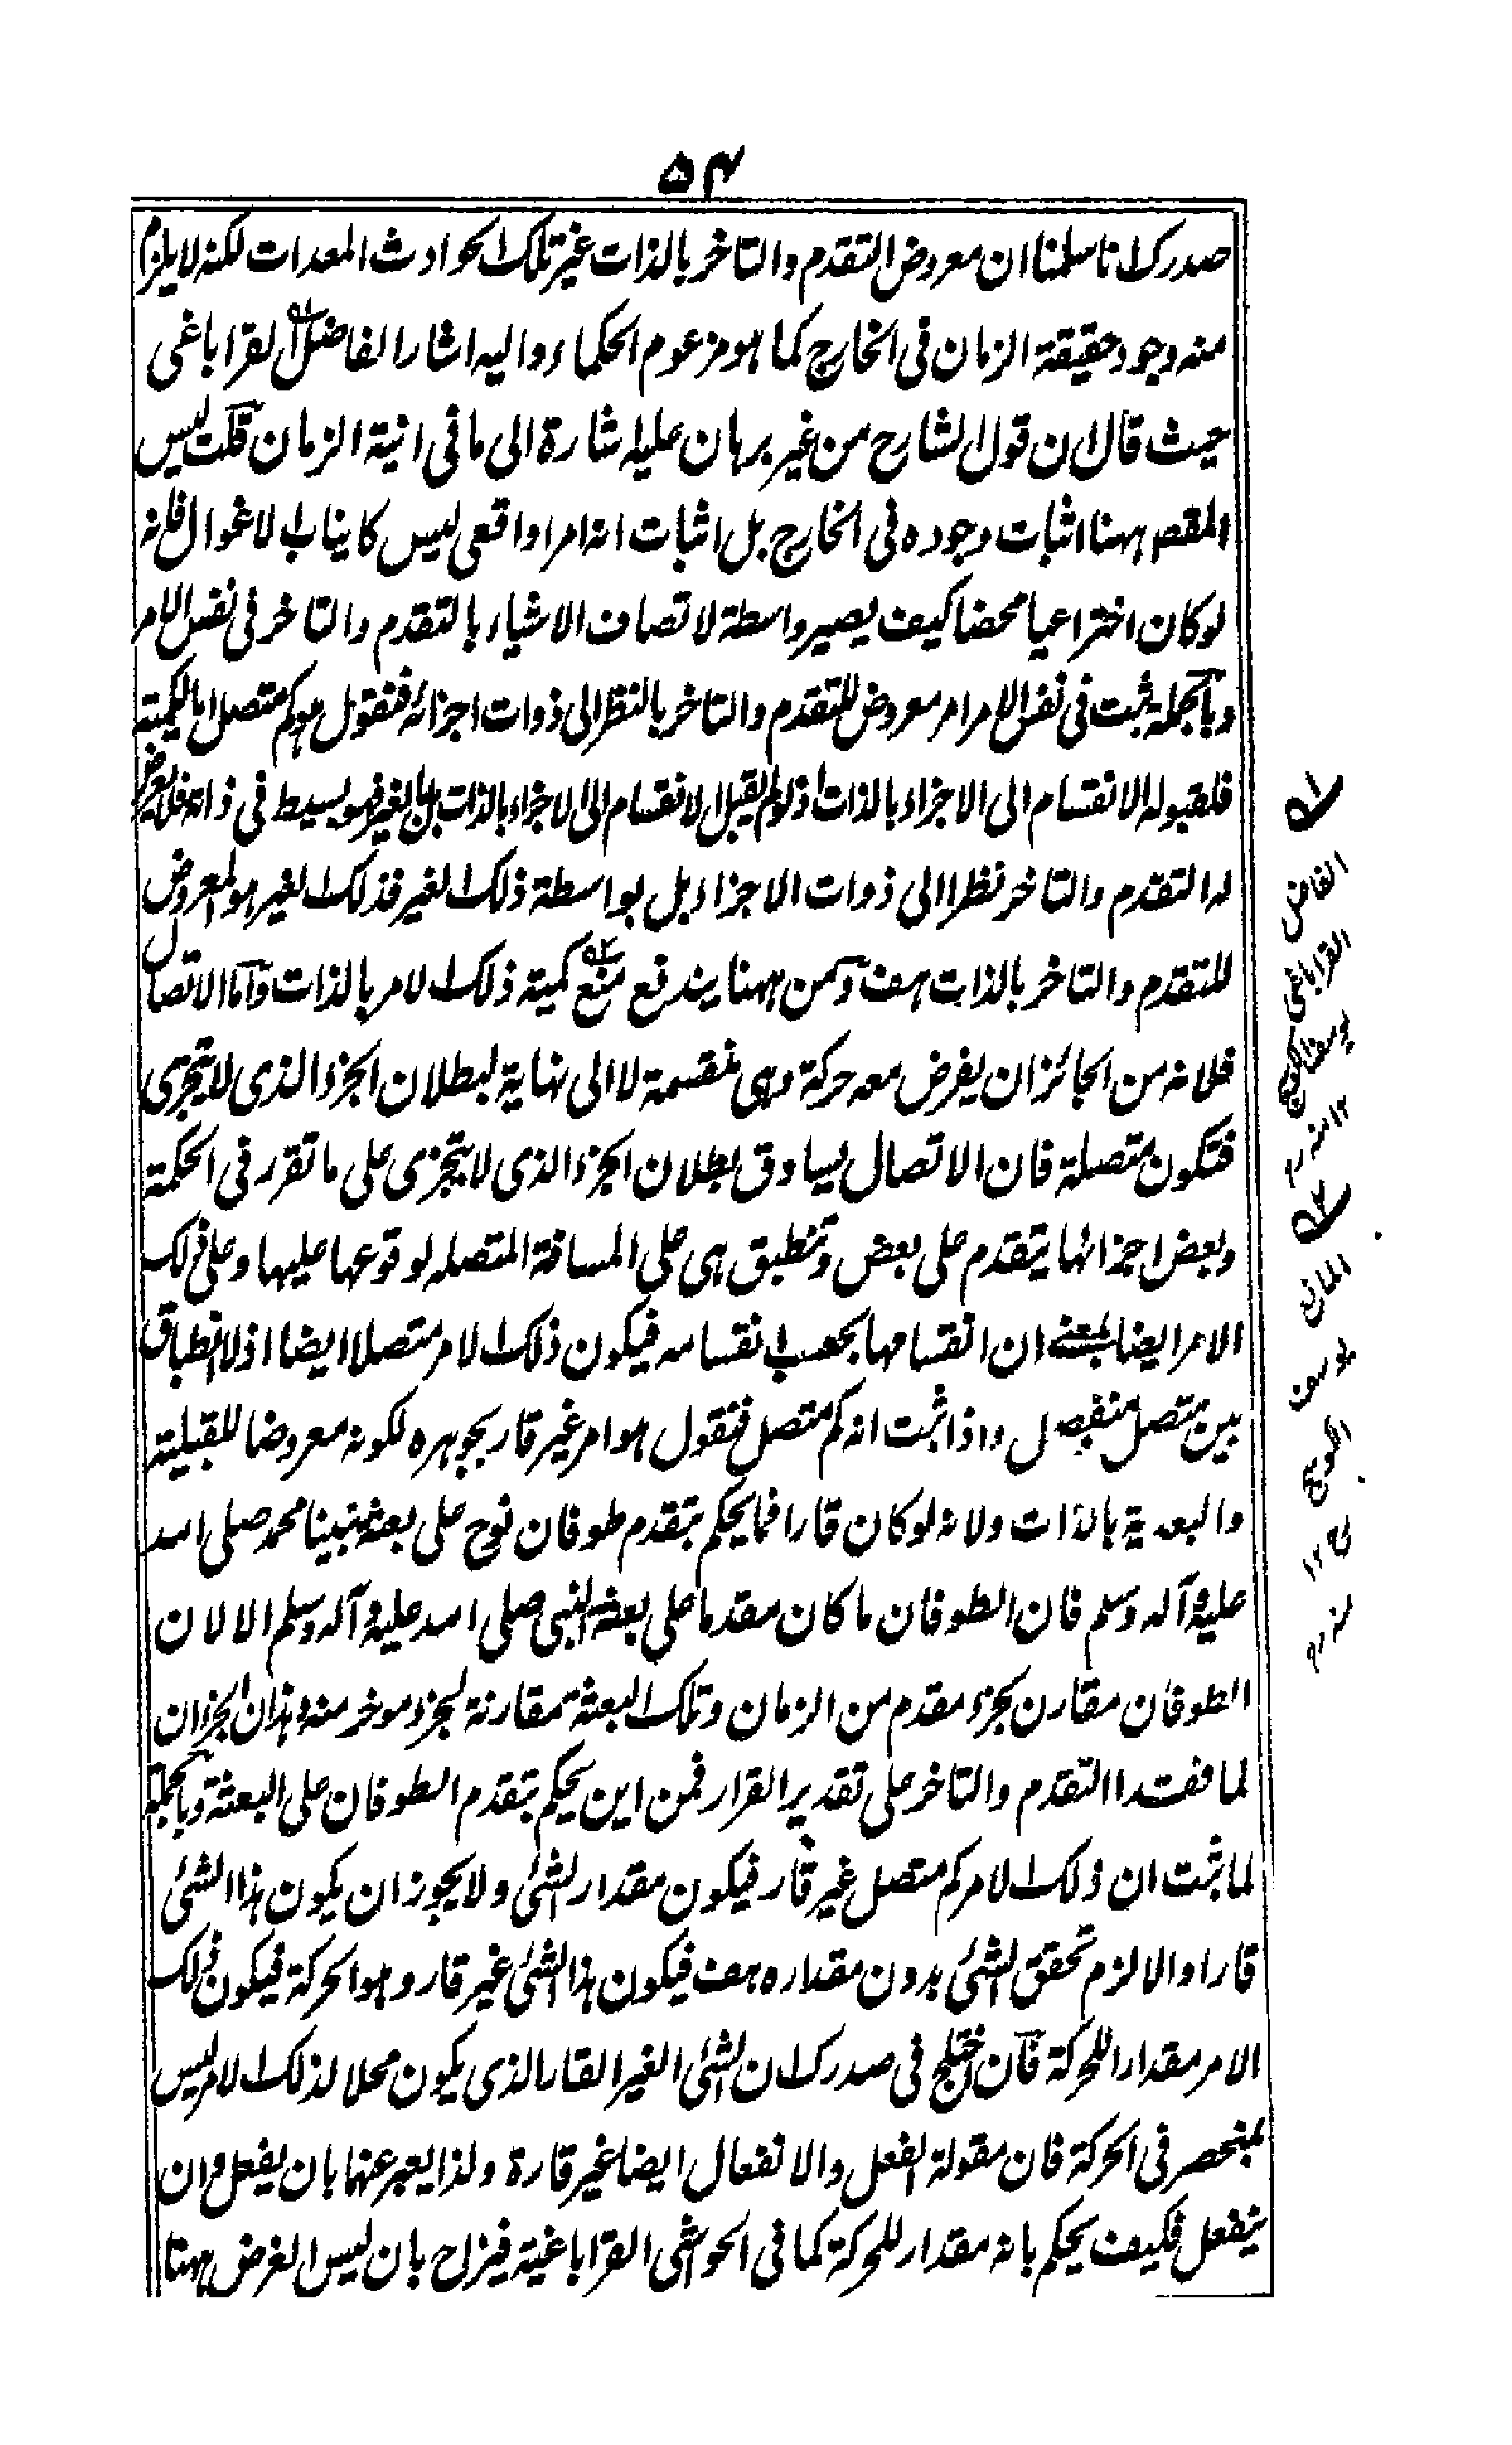 ۵۴
صدرك انا سلمنا ان معروض التقدم والتاخر بالذات غير تلك الحوادث المعدات لكنه لا يلزم
منه وجود حقيقة الزمان فى الخارج كما هو مزعوم الحكماء واليه اشار الفاضل القراباغى
حيث قال ان قول الشارح من غير برهان عليه اشارة الى ما فى انية الزمان قلت ليس
المقصد ههنا اثبات وجوده فى الخارج بل اثبات انه امر واقعى ليس كانياب الاغوال فانه
لو كان اختراعيا محضا كيف يصير واسطة لاتصاف الاشياء بالتقدم والتاخر فى نفس الامر
وبالجملة ثبت فى نفس الامر امر معروض للتقدم والتاخر بالنظر الى ذوات اجزائه فنقول هو كم متصل اما الكمية
فلقبوله الانقسام الى الاجزاء بالذات اذ لو لم يقبل الانقسام الى الاجزاء بالذات بل بالغير فهو بسيط فى ذاته فلا يعرض
له التقدم والتاخر نظرا الى ذوات الاجزاء بل بواسطة ذلك الغير فذلك الغير هو المعروض
للتقدم والتاخر بالذات هف ومن ههنا يندفع منع كمية ذلك الامر بالذات واما الاتصال
فلانه من الجائز ان يفرض معه حركة وهى منقسمة لا الى نهاية لبطلان الجزء الذى لا يتجزى
فتكون متصلة فان الاتصال يساوق بطلان الجزء الذى لا يتجزى على ما تقرر فى الحكمة
وبعض اجزائها يتقدم على بعض وتنطبق هى على المسافة المتصله لوقوعها عليها وعلى ذلك
الامر ايضا بمعنے ان انقسامها بحسب انقسامه فيكون ذلك الامر متصلا ايضا اذ لا انطباق
بين متصل منفصل واذا ثبت انه كم متصل فنقول هو امر غير قار بجوهره لكونه معروضا للقبلية
والبعدية بالذات ولانه لو كان قارا فما يحكم بتقدم طوفان نوح على بعثة نبينا محمد صلى الله
عليه وآله وسلم فان الطوفان ما كان مقدما على بعثة النبى صلى الله عليه وآله وسلم الا لان
الطوفان مقارن بجزء مقدم من الزمان وتلك البعثة مقارنة لجزء موخر منه وهذان الجزءان
لما فقدا التقدم والتاخر على تقدير القرار فمن اين يحكم بتقدم الطوفان على البعثة وبالجملة
لما ثبت ان ذلك الامر كم متصل غير قار فيكون مقدار الشئ ولا يجوز ان يكون هذا الشئ
قارا والا لزم تحقق الشئ بدون مقداره هف فيكون هذا الشئ غير قار وهو الحركة فيكون ذلك
الامر مقدارا للحركة فان اختلج فى صدرك ان الشئ الغير القار الذى يكون محلا لذلك الامر ليس
بمنحصر فى الحركة فان مقولة الفعل والانفعال ايضا غير قارة ولذا يعبر عنها بان يفعل وان
ينفعل فكيف يحكم بانه مقدار للحركة كما فى الحواشى القراباغية فيزاح بان ليس الغرض ههنا
لہ ۱
الفاضل
القراباغى
يوسف الكوسج
۱۲ منه رح
لہ ۲
المانع
يوسف
الكوسج
۱۲
منه رح